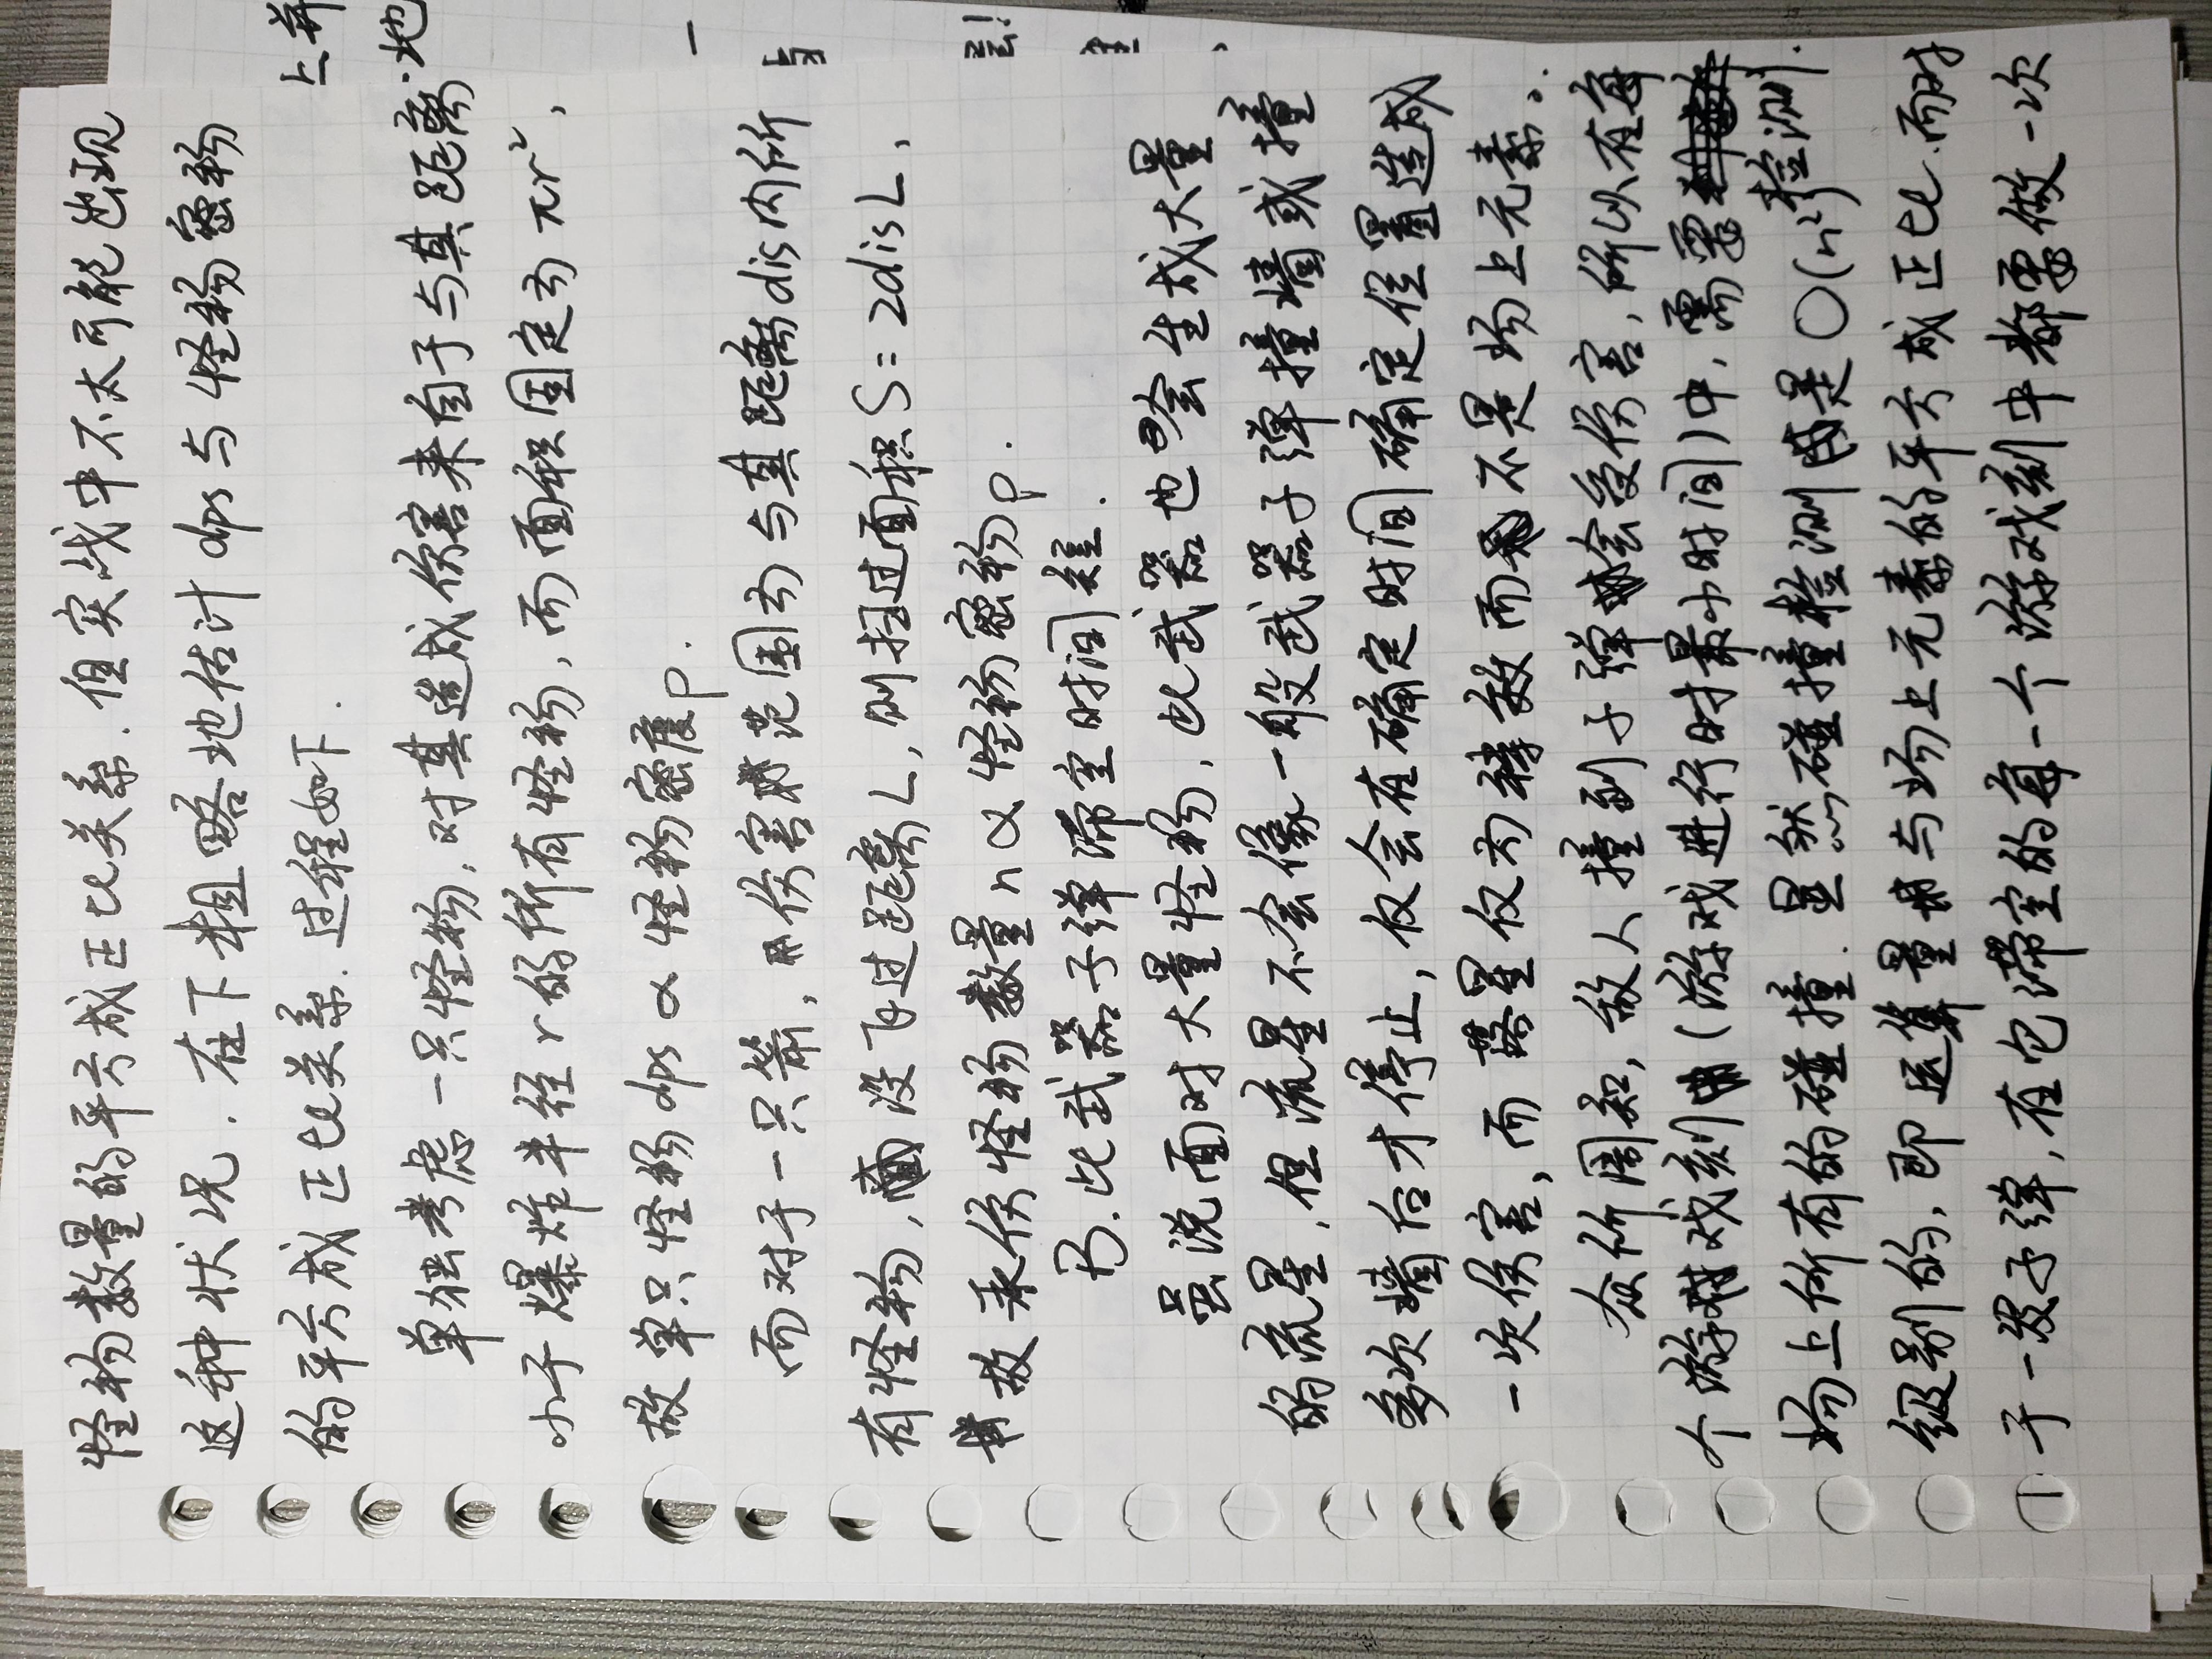 怪物数量的平方成正比关系.但实战中不太可能出现
这种状况.在下粗略地估计dps与怪物密物
的平方成正比关系.过程如下.
单独考虑一只怪物,对其造成伤害来自于与其距离
小于爆炸半径r的所有怪物,而面积固定为πr²,
故单只怪物dps∝怪物密度ρ.
而对于一只箭,伤害范围为与其距离dis内所
有怪物,设飞过距离L,则扫过面积S=2disL,
故承伤怪物数量n∝怪物密物ρ.
B.此武器子弹滞空时间短.
虽说面对大量怪物,此武器也会生成大量
的流星,但流星不会像一般武器子弹撞墙或撞
多次墙后才停止,仅会在确定时间确定位置造成
一次伤害,而星仅为特效而不是场上元素.
众所周知,敌人撞到子弹会受伤害,所以在每
个游戏刻(游戏进行时最小时间)中,需要
场上所有的碰撞.显然碰撞检测是O(n²)检测.
级别的,即运算量与场上元素的平方成正比.而对
于一发子弹,在它滞空的每一个游戏刻中都要做一次
上并
地
一
与